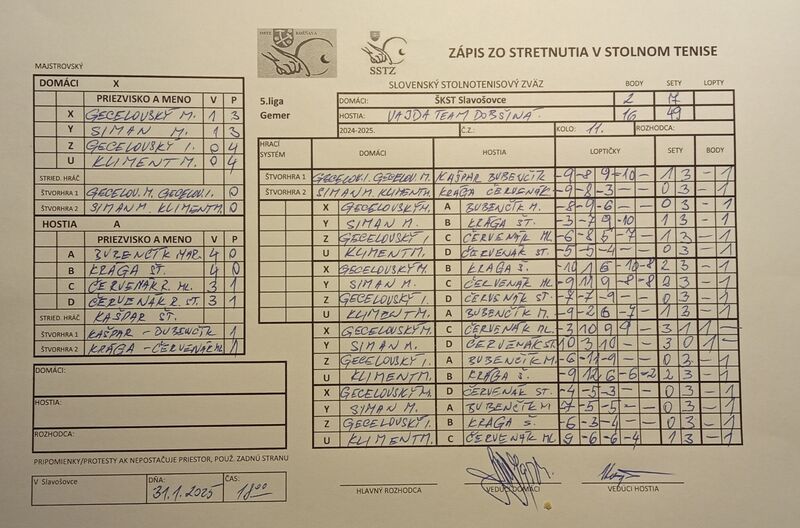 SSTZ
ZÁPIS ZO STRETNUTIA V STOLNOM TENISE
MAJSTROVSKÝ
SLOVENSKÝ STOLNOTENISOVÝ ZVÄZ
BODY SETY LOPTY
5.liga DOMÁCI: ŠKST Slavošovce 2 17
Gemer HOSTIA: VAJDA TEAM DOBŠINÁ 16 49
2024-2025. Č.Z.: KOLO: 11. ROZHODCA:
DOMÁCI X
PRIEZVISKO A MENO V P
X GECELOVSKÝ M. 1 3
Y SIMAN M. 1 3
Z GECELOVSKÝ I. 0 4
U KLIMENT M. 0 4
STRIED. HRÁČ
ŠTVORHRA 1 GECELOV. M. GECELOV. I. 0
ŠTVORHRA 2 SIMAN M. KLIMENT M. 0
HOSTIA A
PRIEZVISKO A MENO V P
A BUBENČÍK MAR. 4 0
B KRAGA ŠT. 4 0
C ČERVENÁK R. ML. 3 1
D ČERVENÁK R. ST. 3 1
STRIED. HRÁČ KAŠPAR ŠT.
ŠTVORHRA 1 KAŠPAR - BUBENČÍK 1
ŠTVORHRA 2 KRAGA - ČERVENÁK ML. 1
HRACÍ SYSTÉM DOMÁCI HOSTIA LOPTIČKY SETY BODY
ŠTVORHRA 1 GECELOV. I. GECELOV. M. KAŠPAR BUBENČÍK -9 -8 9 -10 - 1 3 - 1
ŠTVORHRA 2 SIMAN M. KLIMENT M. KRAGA ČERVENÁK -9 -8 -3 - - 0 3 - 1
X GECELOVSKÝ M. A BUBENČÍK M. -8 -9 -6 - - 0 3 - 1
Y SIMAN M. B KRAGA ŠT. -3 -7 9 -10 1 3 - 1
Z GECELOVSKÝ I. C ČERVENÁK ML. -6 -8 5 -7 - 1 3 - 1
U KLIMENT M. D ČERVENÁK ST. -5 -5 -4 - - 0 3 - 1
X GECELOVSKÝ M. B KRAGA Š. -10 1 6 -10 -8 2 3 - 1
Y SIMAN M. C ČERVENÁK ML. -9 11 9 -8 -8 2 3 - 1
Z GECELOVSKÝ I. D ČERVENÁK ST. -7 -7 -9 - - 0 3 - 1
U KLIMENT M. A BUBENČÍK M. -9 -2 6 -7 - 1 3 - 1
X GECELOVSKÝ M. C ČERVENÁK ML. -3 10 9 9 - 3 1 1 -
Y SIMAN M. D ČERVENÁK ST. 10 3 10 - - 3 0 1 -
Z GECELOVSKÝ I. A BUBENČÍK M. -6 -11 -9 - - 0 3 - 1
U KLIMENT M. B KRAGA Š. -9 12 6 -6 -2 2 3 - 1
X GECELOVSKÝ M. D ČERVENÁK ST. -4 -5 -3 - - 0 3 - 1
Y SIMAN M. A BUBENČÍK M. -7 -5 -5 - - 0 3 - 1
Z GECELOVSKÝ I. B KRAGA Š. -6 -3 -4 - - 0 3 - 1
U KLIMENT M. C ČERVENÁK ML. 9 -6 -6 -4 1 3 - 1
DOMÁCI:
HOSTIA:
ROZHODCA:
PRIPOMIENKY/PROTESTY AK NEPOSTAČUJE PRIESTOR, POUŽ. ZADNÚ STRANU
V Slavošovce DŇA: 31.1.2025 ČAS: 18:00
HLAVNÝ ROZHODCA VEDÚCI DOMÁCI VEDÚCI HOSTIA